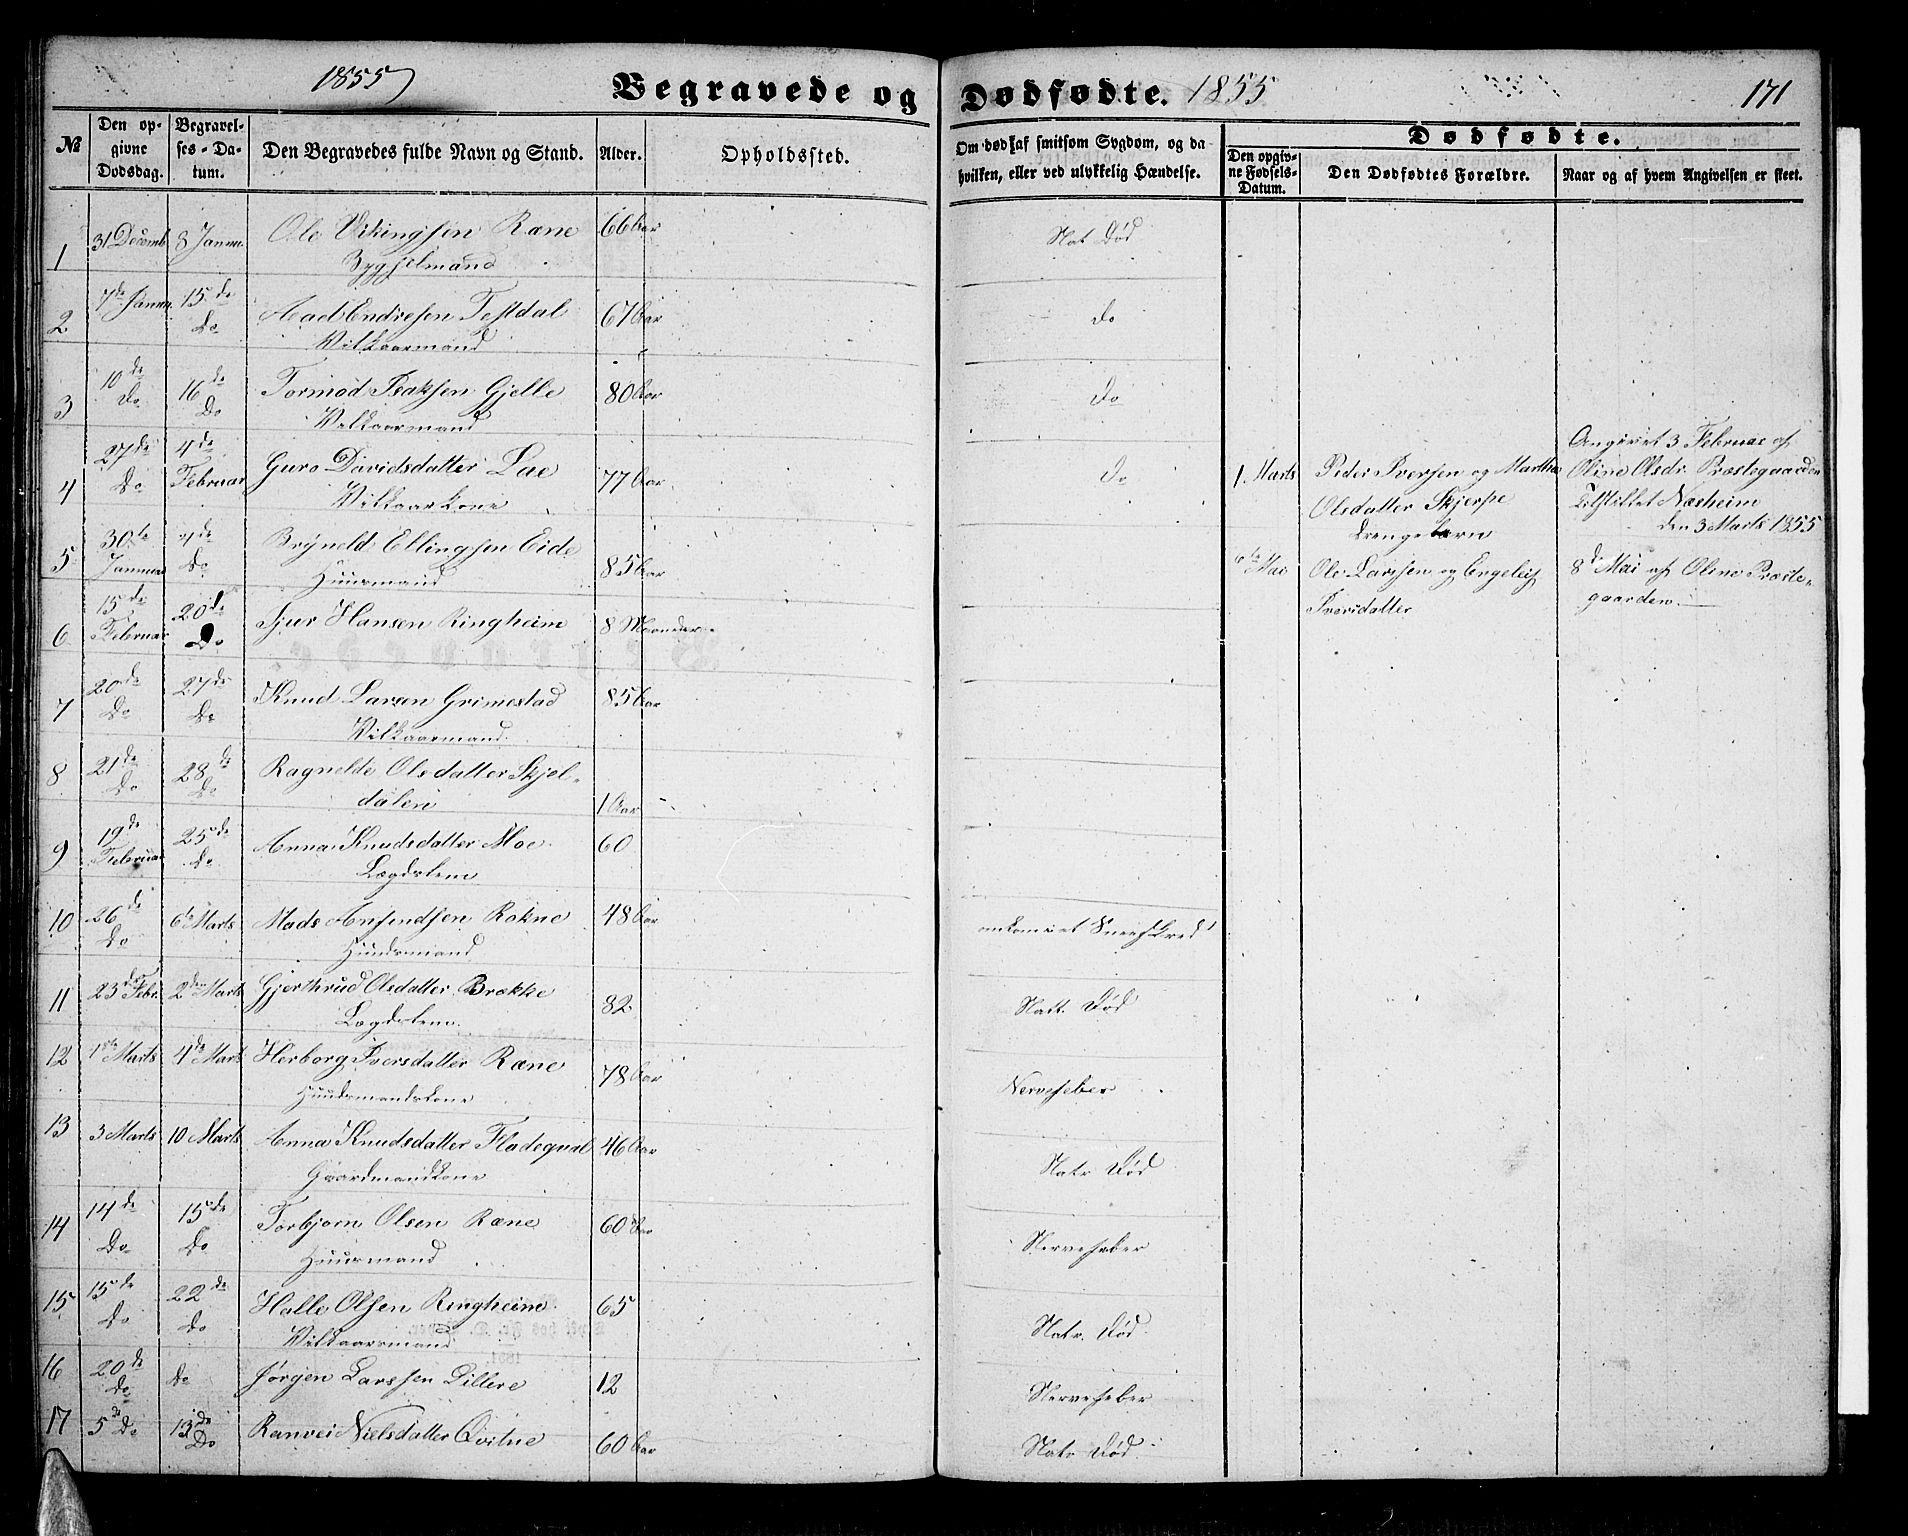 1855
Begravede og
Dødfødte. 1855
171
№
Den opgivne Dødsdag.
Begravelses-Datum.
Den Begravedes fulde Navn og Stand.
Alder.
Opholdssted.
Om død af smitsom Sygdom, og da
hvilken, eller ved ulykkelig Hændelse.
Dødfødte.
Den opgivne Fødsels-Datum.
Den Dødfødtes Forældre.
Naar og af hvem Angivelsen er skeet.
1 31 Decemb 8 Januar Ole Vikingsen Ræne 66 Aar Nat Død
2 7de Januar 15de Do Aad Endresen Testdal 67 Aar Do
Vilkaarmand
3 10de Do 16de Do Tormod Isaksen Gjelle 80 Aar Do
Vilkaarmand
4 27de Do 4de Februar Guro Davidsdatter Lae 77 Aar Do
Vilkaarkone
5 30te Januar Do Bryneld Ellingsen Eide 85 Aar
Huusmand
6 15de Februar 20de Do Sjur Hansen Ringheim 8 Maaneder
7 20de Do 27de Do Knud Larsen Grimestad 85 Aar
Vilkaarmand
8 21de Do 28de Do Ragnelde Olsdatter Skjel-
dalen 1 Aar
9 19de Februar 25de Do Anna Knudsdatter Moe 60
Lægdslem
10 26de Do 6te Marts Mads Amundsen Rokne 48 Aar omkom i et Sneeskred
Huusmand
11 23de Febr. 2den Marts Gjerthrud Olsdatter Brække 82 Natt. Død
Lægdslem
12 1ste Marts 4de Marts Herborg Iversdatter Ræne 78 Aar Nervefeber
Huusmandskone
13 3 Marts 10 Marts Anna Knudsdatter Fladequal 46 Aar Natr Død
Gaardmandkone
14 14de Do 15de Do Torbjørn Olsen Ræne 60 Aar Nervefeber
Huusmand
15 15de Do 22de Do Halle Olsen Ringheim 65 Natr. Død
Vilkaarsmand
16 20de Do Do Jørgen Larssen Dillere 12 Nervefeber
17 5te Do 13de Do Ranvei Nielsdatter Qvitne 60 Aar Natr Død
1. Marts Peder Iversen og Martha
Olsdatter Skjerpe
Drengebarn
Angivet 3 Februar af
Oline Olsdr. Præstegaarden
Tilstillet Næsheim
den 3 Marts 1855
6te Mai Ole Larssen og Engeleif
Iversdatter
8de Mai af Oline Præste-
gaarden.